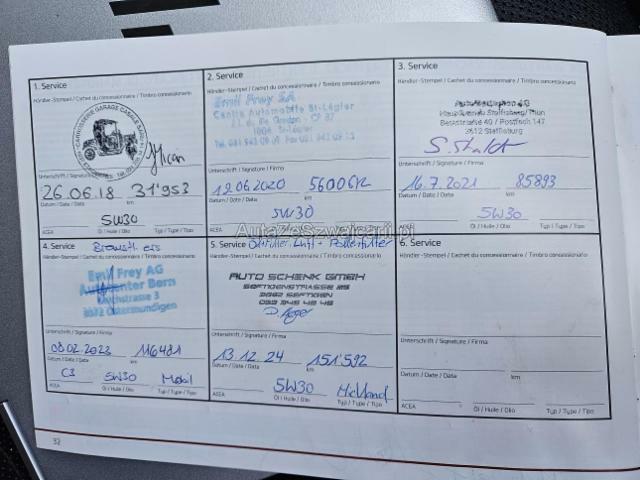 1. Service
Händler-Stempel / Cachet du concessionnaire / Timbro concessionario
CARROSSERIE GARAGE
Unterschrift / Signature / Firma
26.06.18 31'953
Datum / Date / Data km
5W30
ACEA Öl / Huile / Olio Typ / Type / Tipo
2. Service
Händler-Stempel / Cachet du concessionnaire / Timbro concessionario
Emil Frey SA
Centre Automobile St-Légier
1806 St-Légier
Unterschrift / Signature / Firma
12.06.2020 56006
Datum / Date / Data km
5W30
ACEA Öl / Huile / Olio Typ / Type / Tipo
3. Service
Händler-Stempel / Cachet du concessionnaire / Timbro concessionario
Bernstrasse 40 / Postfach 147
3612 Steffisburg
Unterschrift / Signature / Firma
16.7.2021 85893
Datum / Date / Data km
5W30
ACEA Öl / Huile / Olio Typ / Type / Tipo
AutaZeSzwajcarii.pl
4. Service
Händler-Stempel / Cachet du concessionnaire / Timbro concessionario
Emil Frey AG
Autocenter Bern
3072 Ostermundigen
Unterschrift / Signature / Firma
08.02.2023 116481
Datum / Date / Data km
C3 5W30 Mobil
ACEA Öl / Huile / Olio Typ / Type / Tipo
5. Service Luft + Pollenfilter
Händler-Stempel / Cachet du concessionnaire / Timbro concessionario
AUTO SCHENK GMBH
3662 SEFTIGEN
Unterschrift / Signature / Firma
13.12.24 151'592
Datum / Date / Data km
5W30 Midland
ACEA Öl / Huile / Olio Typ / Type / Tipo
6. Service
Händler-Stempel / Cachet du concessionnaire / Timbro concessionario
Unterschrift / Signature / Firma
Datum / Date / Data km
ACEA Öl / Huile / Olio Typ / Type / Tipo
32